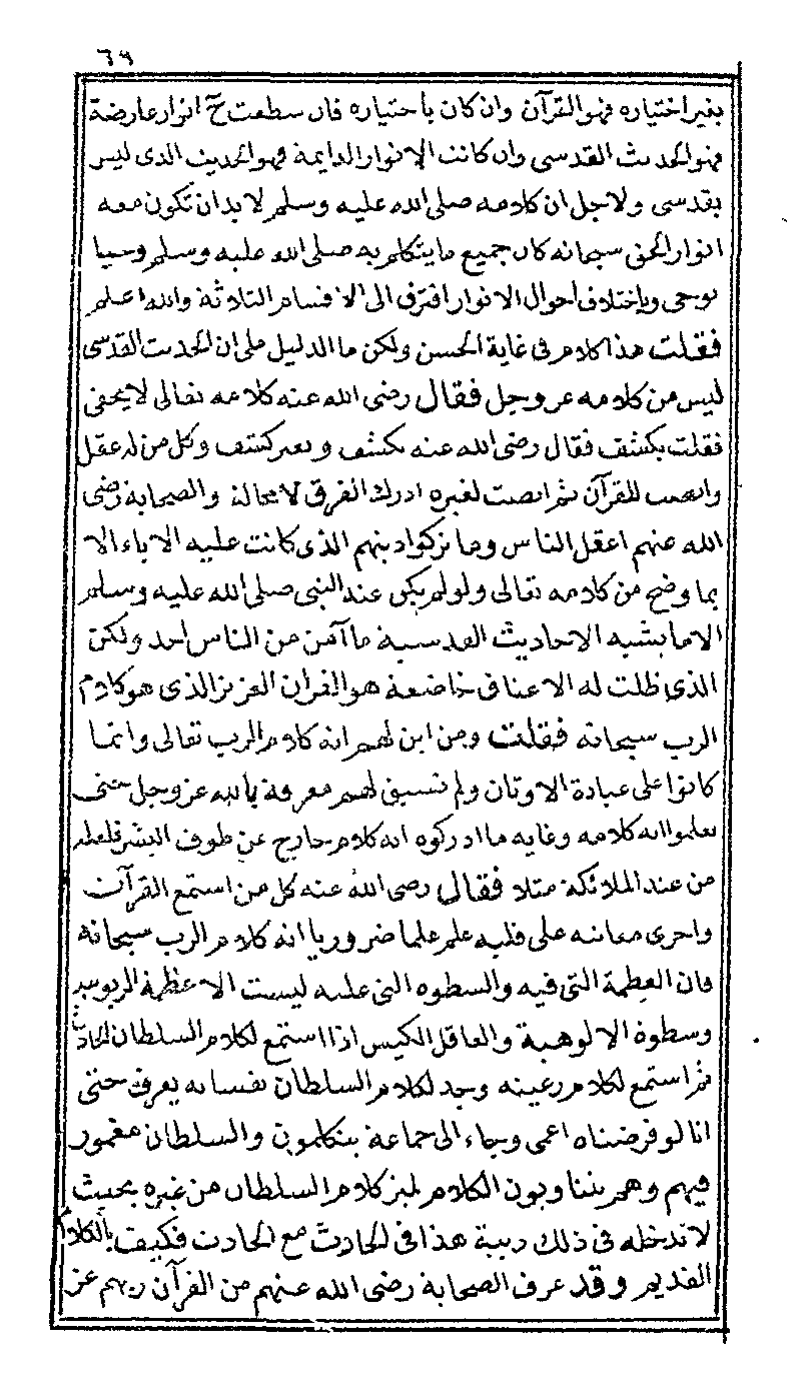 ٦٩
بغير اختياره فهو القرآن وان كان باختياره فان سطعت ح انوار عارضة
فهو الحديث القدسى وان كانت الانوار الدايمة فهو الحديث الذى ليس
بقدسى ولاجل ان كلامه صلى الله عليه وسلم لابد ان تكون معه
انوار الحق سبحانه كان جميع ما يتكلم به صلى الله عليه وسلم وحيا
يوحى وباختلاف احوال الانوار افترق الى الاقسام الثلاثة والله اعلم
فقلت هذا كلام فى غاية الحسن ولكن ما الدليل على ان الحديث القدسى
ليس من كلامه عز وجل فقال رضى الله عنه كلامه تعالى لا يخفى
فقلت بكشف فقال رضى الله عنه بكشف وبغير كشف وكل من له عقل
وانصت للقرآن ثم انصت لغيره ادرك الفرق لا محالة والصحابة رضى
الله عنهم اعقل الناس وما تركوا دينهم الذى كانت عليه الاباء الا
بما وضح من كلامه تعالى ولو لم يكن عند النبى صلى الله عليه وسلم
الا ما يشبه الاحاديث القدسية ما آمن من الناس احد ولكن
الذى ظلت له الاعناق خاضعة هو القران العزيز الذى هو كلام
الرب سبحانه فقلت ومن اين لهم انه كلام الرب تعالى وانما
كانوا على عبادة الاوثان ولم تسبق لهم معرفة بالله عز وجل حتى
يعلموا انه كلامه وغايه ما ادركوه انه كلام خارج عن طوق البشر فلعله
من عند الملائكة مثلا فقال رضى الله عنه كل من استمع القرآن
واجرى معانيه على قلبه علم علما ضروريا انه كلام الرب سبحانه
فان العظمة التى فيه والسطوه التى عليه ليست الا عظمة الربوبية
وسطوة الالوهية والعاقل الكيس اذا استمع لكلام السلطان الحادث
ثم استمع لكلام رعيته وجد لكلام السلطان نفسا به يعرف حتى
انا لو فرضناه اعمى وجاء الى جماعة يتكلمون والسلطان مغمور
فيهم وهم يتناوبون الكلام لميز كلام السلطان من غيره بحيث
لا تدخله فى ذلك ريبة هذا فى الحادث مع الحادث فكيف بالكلام
القديم وقد عرف الصحابة رضى الله عنهم من القرآن ربهم عز